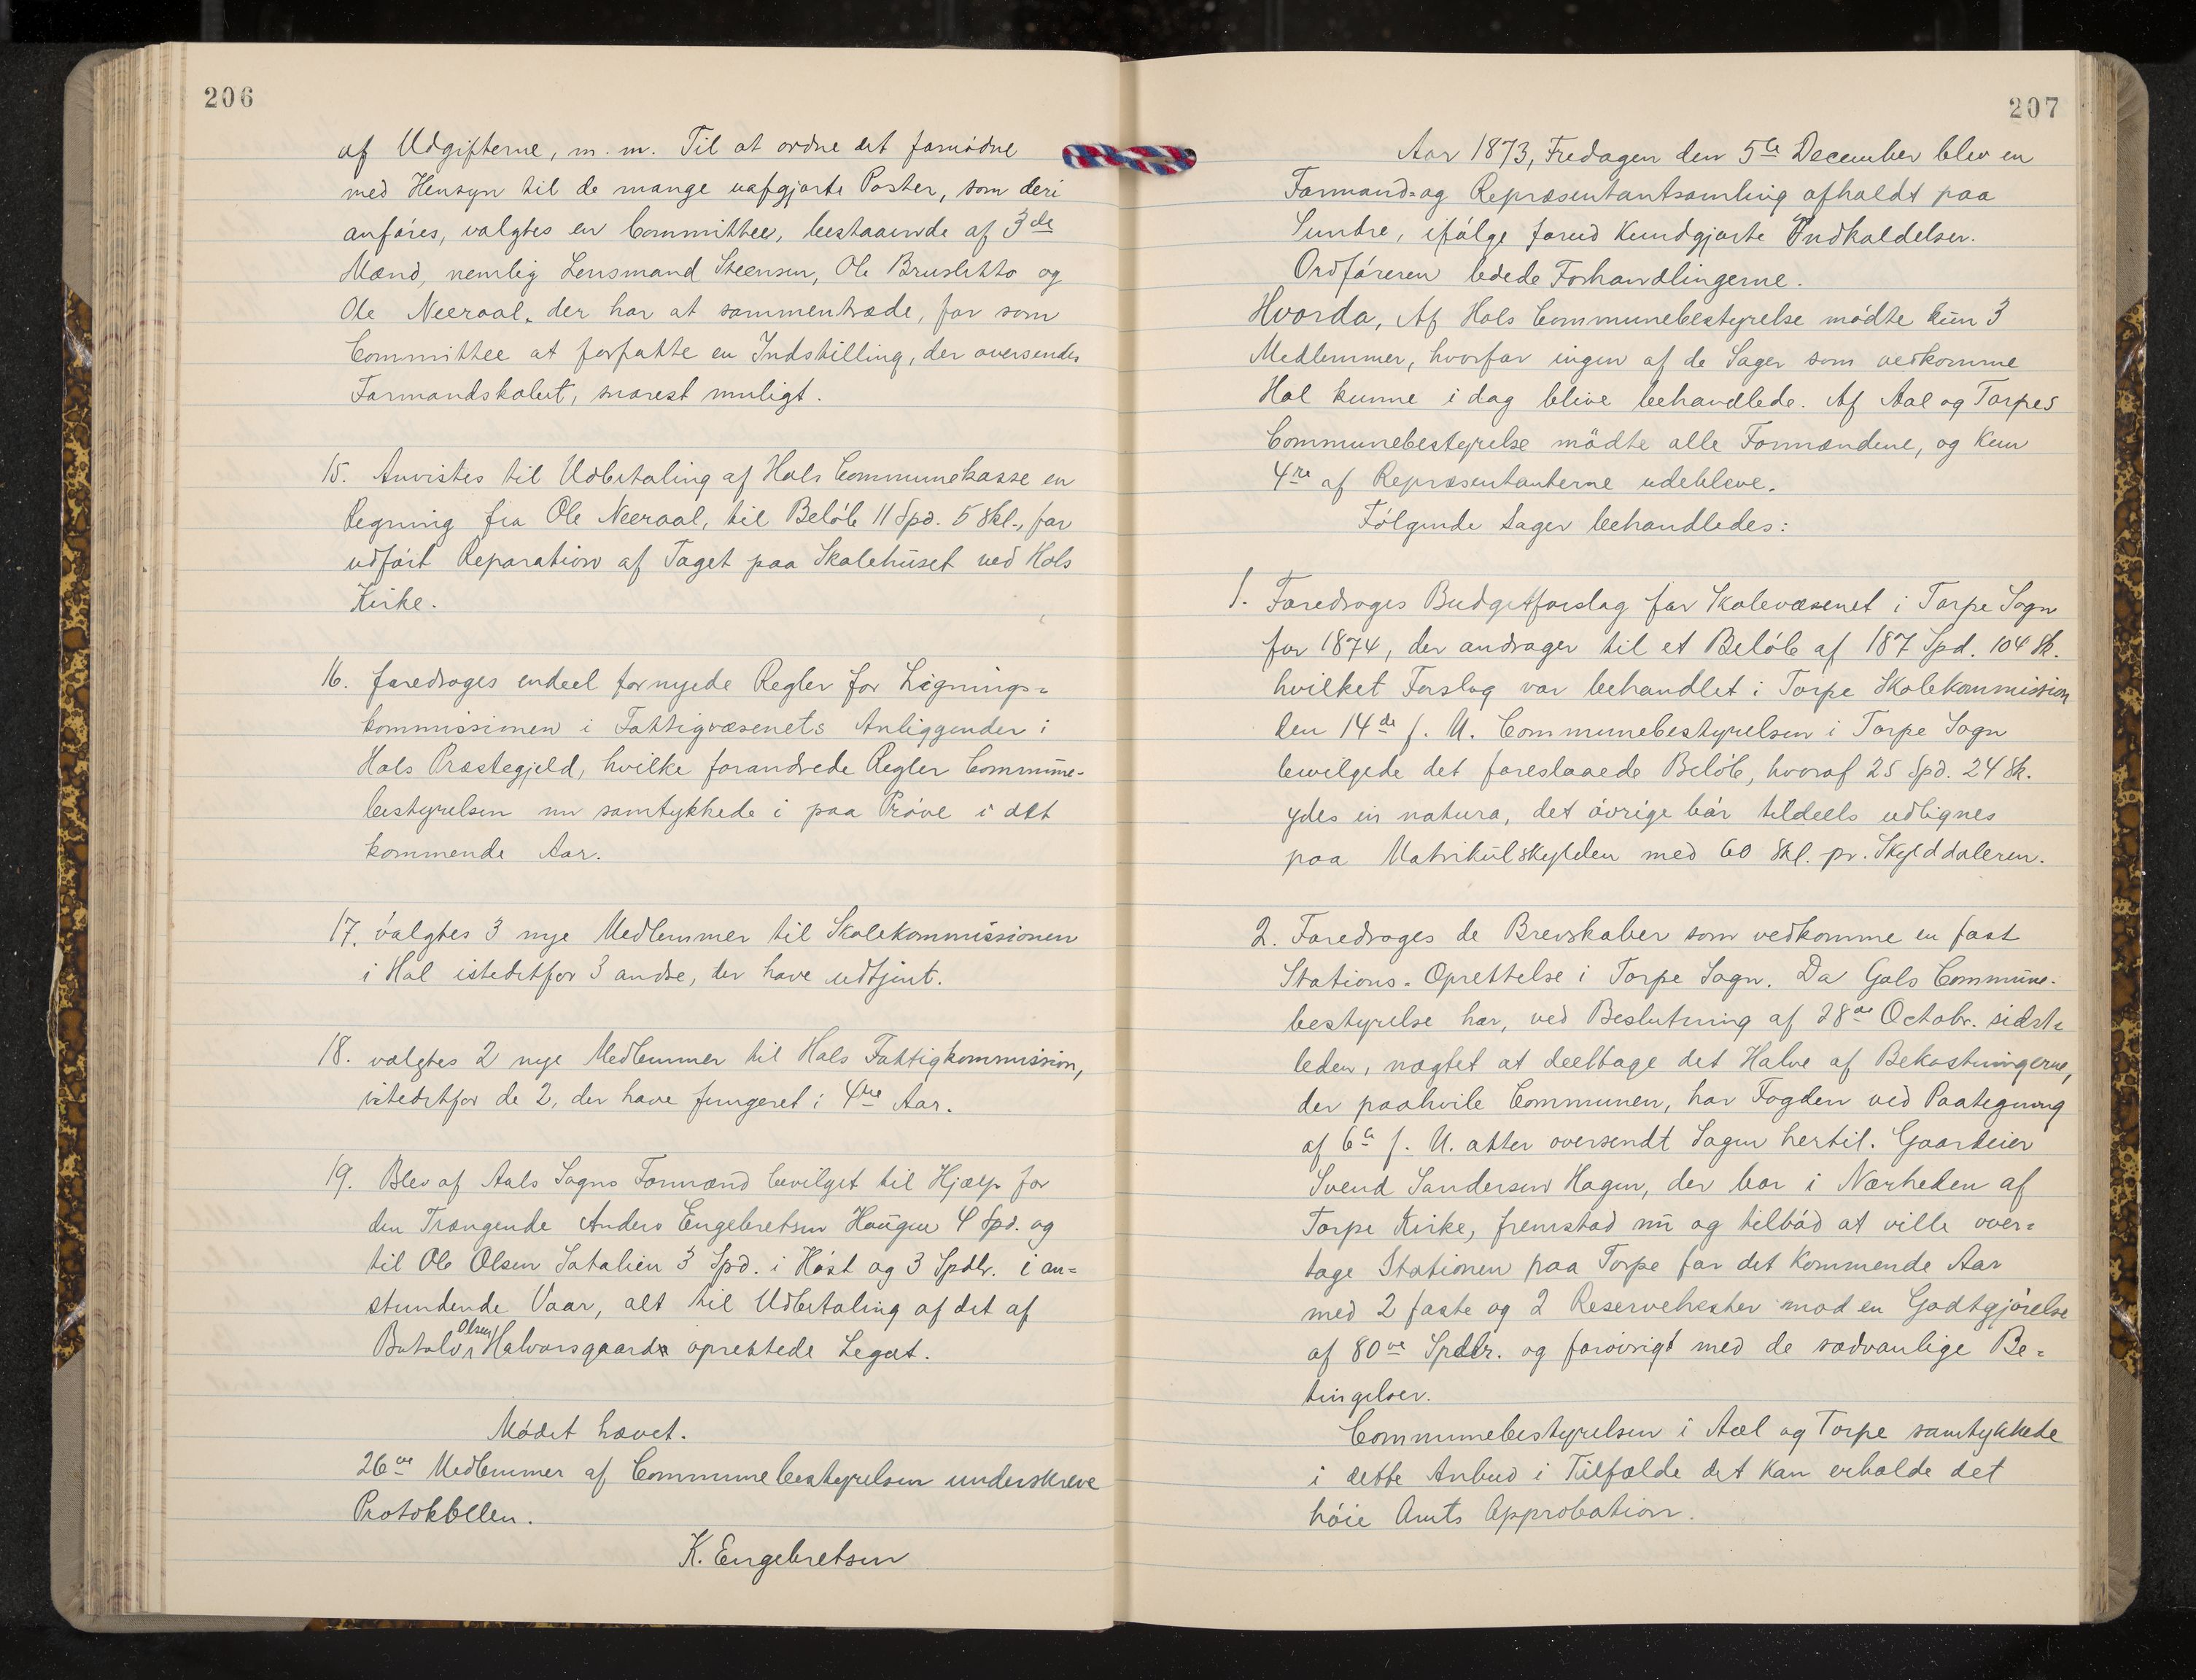 206
af Udgifterne, m. m. Til at ordne det fornødne
med Hensyn til de mange uafgjorte Poster, som deri
anføres, valgtes en Committee, bestaaende af 3de
Mænd, nemlig Lensmand Steensen, Ole Brusletto og
Ole Neeraal, der har at sammentræde, for som
Committee at forfatte en Indstilling, der oversendes
Formandskabet, snarest muligt.
15. Anvistes til Udbetaling af Hols Communekasse en
Regning fra Ole Neeraal, til Beløb 11 Spd. 5 Skl., for
udført Reparation af Taget paa Skolehuset ved Hols
Kirke.
16. foredroges endeel fornyede Regler for Lignings=
kommissionen i Fattigvæsenets Anliggender i
Hols Præstegjeld, hvilke forandrede Regler Commune-
bestyrelsen nu samtykkede i paa Prøve i det
kommende Aar.
17. valgtes 3 nye Medlemmer til Skolekommissionen
i Hol istedetfor 3 andre, der have udtjent.
18. valgtes 2 nye Medlemmer til Hols Fattigkommission,
istedetfor de 2, der have fungeret i 4re Aar.
19. Blev af Aals Sogns Formænd bevilget til Hjælp for
den Trængende Anders Engebretsen Haugen 4 Spd. og
til Ole Olsen Sataliën 3 Spd. i Høst og 3 Spdlr. i an=
stundende Vaar, alt til Udbetaling af det af
Botolv Olsen Halvorsgaard oprettede Legat.
Mødet hævet.
26ve Medlemmer af Communebestyrelsen underskreve
Protokollen.
K. Engebretsen
207
Aar 1873, Fredagen den 5te December blev en
Formand= og Repræsentantsamling afholdt paa
Sundre, ifølge forud Kundgjorte Indkaldelser.
Ordføreren ledede Forhandlingerne.
Hvorda, Af Hols Communebestyrelse mødte kun 3
Medlemmer, hvorfor ingen af de Sager som vedkomme
Hol kunne i dag blive behandlede. Af Aal og Torpes
Communebestyrelse mödte alle Formændene, og kun
4re af Repræsentanterne udebleve.
Følgende Sager behandledes:
1. Foredroges Budgetforslag for Skolevæsenet i Torpe Sogn
for 1874, der andrager til et Beløb af 187 Spd. 104 Sk.
hvilket Forslag var behandlet i Torpe Skolekommission
den 14de f. M. Communebestyrelsen i Torpe Sogn
bevilgede det foreslaaede Beløb, hvoraf 25 Spd. 24 Sk.
ydes in natura, det øvrige bør tildeels udlignes
paa Matrikülskylden med 60 Skl. pr. Skylddaleren.
2. Foredroges de Brevskaber som vedkomme en fast
Stations-Oprettelse i Torpe Sogn. Da Gols Commune-
bestyrelse har, ved Beslutning af 28de Octobr. sidst=
leden, nægtet at deeltage det Halve af Bekostningerne,
der paahvile Communen, har Fogden ved Paategning
af 6te f. M. atter oversendt Sagen hertil. Gaardeier
Svend Sandersen Hagen, der bor i Nærheden af
Torpe Kirke, fremstod nu og tilbød at ville over=
tage Stationen paa Torpe for det kommende Aar
med 2 faste og 2 Reserveheste mod en Godtgjørelse
af 80ve Spdlr. og forøvrigt med de sædvanlige Be=
tingelser.
Communebestyrelsen i Aal og Torpe samtykkede
i dette Anbud i Tilfælde det kan erholde det
høie Amts Approbation.